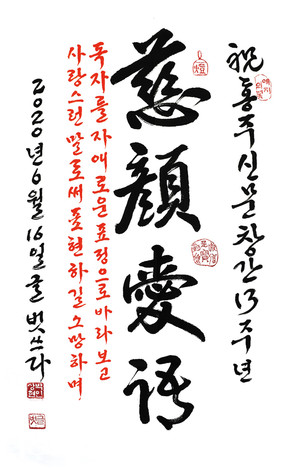 祝 홍주신문 창간 13주년
慈顔愛語
독자를 자애로운 표정으로 바라보고
사랑스런 말로써 표현하길 소망하며
2020년 6월 16일 글벗 쓰다